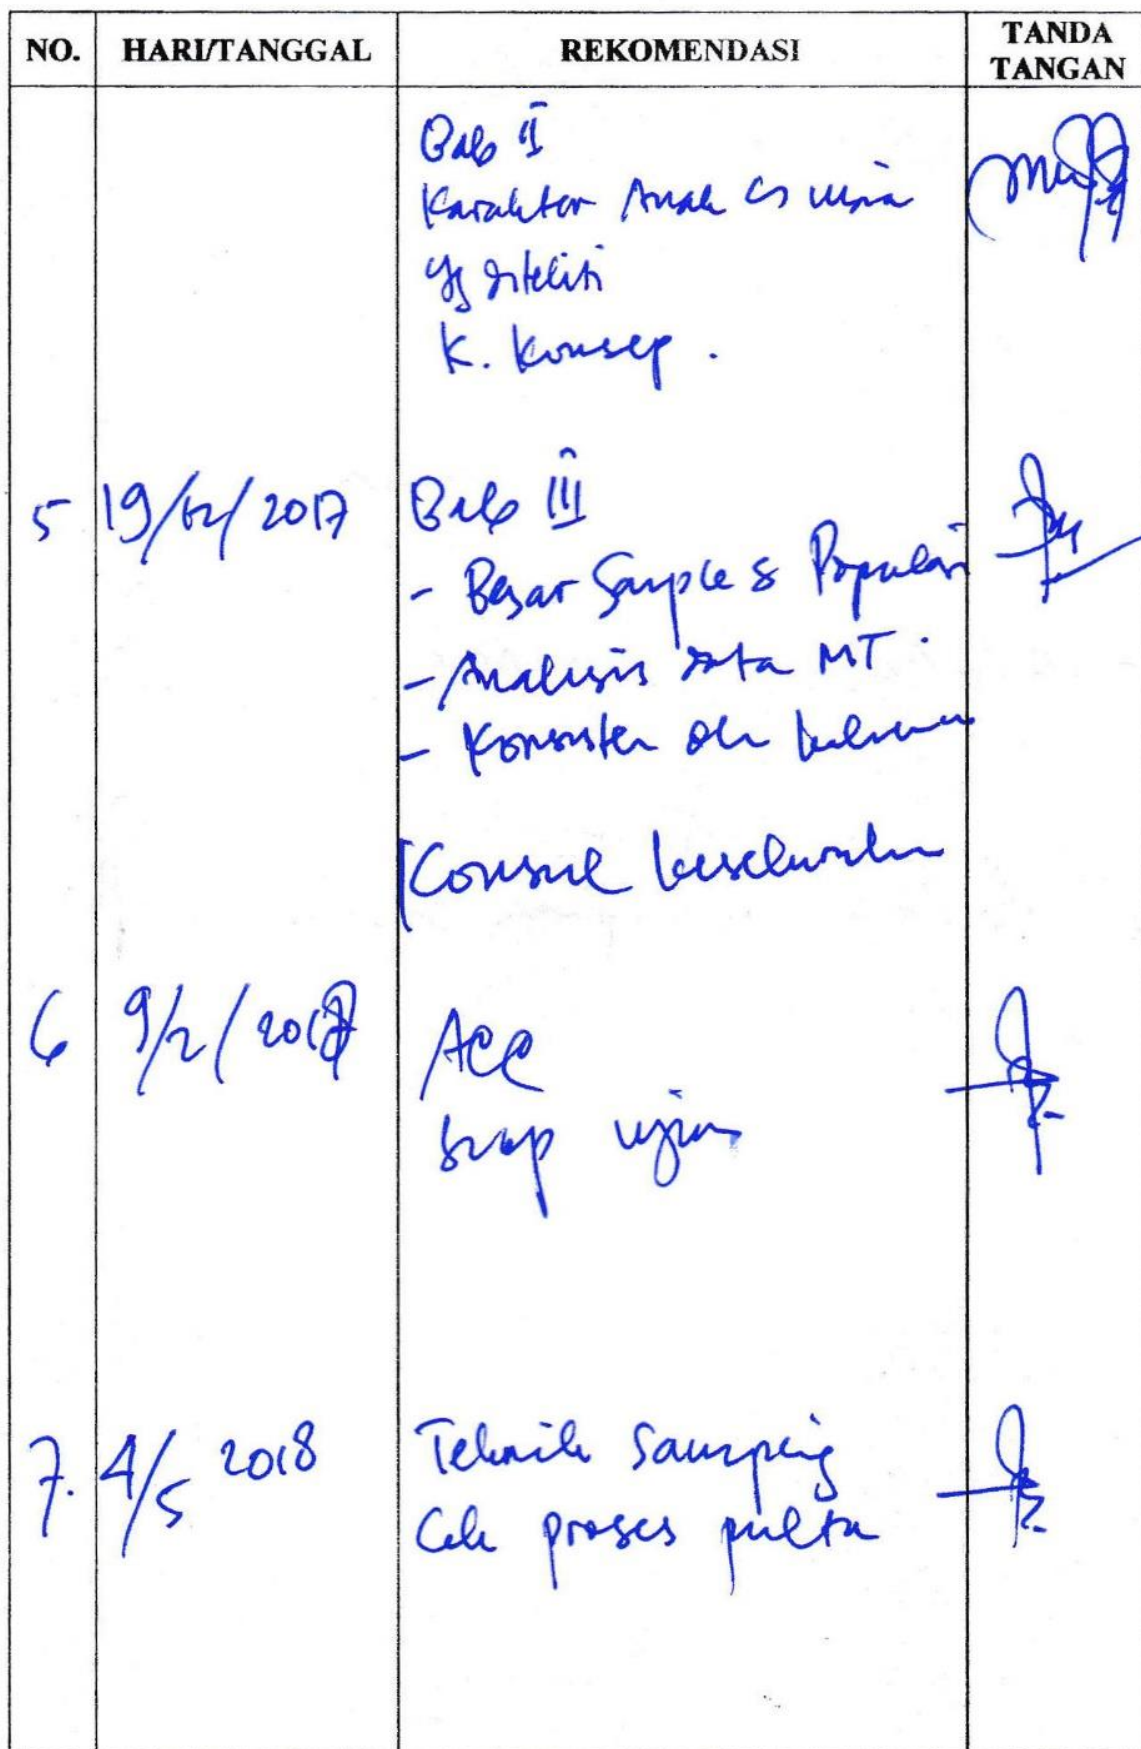 NO. HARI/TANGGAL REKOMENDASI TANDA TANGAN
Bab II
Karakter Anak usia
yg diteliti
K. Konsep .
5 19/12/2017 Bab III
- Besar Sample & Populasi
- Analisis data MT .
- Konsisten
Konsul keseluruhan
6 9/2/2018 ACC
siap ujian
7. 4/5 2018 Teknik Sampling
Cek proses pulta